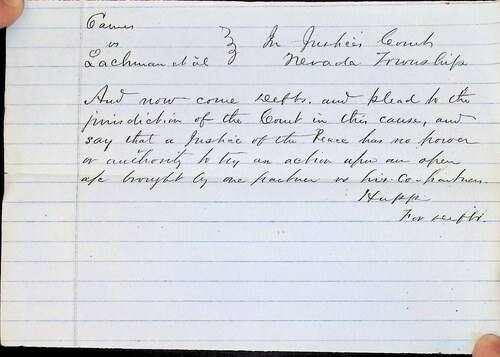 vs } In Justice's Court
Lachman et al } Nevada Township
And now come Defts. and plead to the
jurisdiction of the Court in this cause, and
say that a Justice of the Peace has no power
or authority to try an action upon an open
a/c brought by one partner vs his co-partners.
Hupp
For Defts.